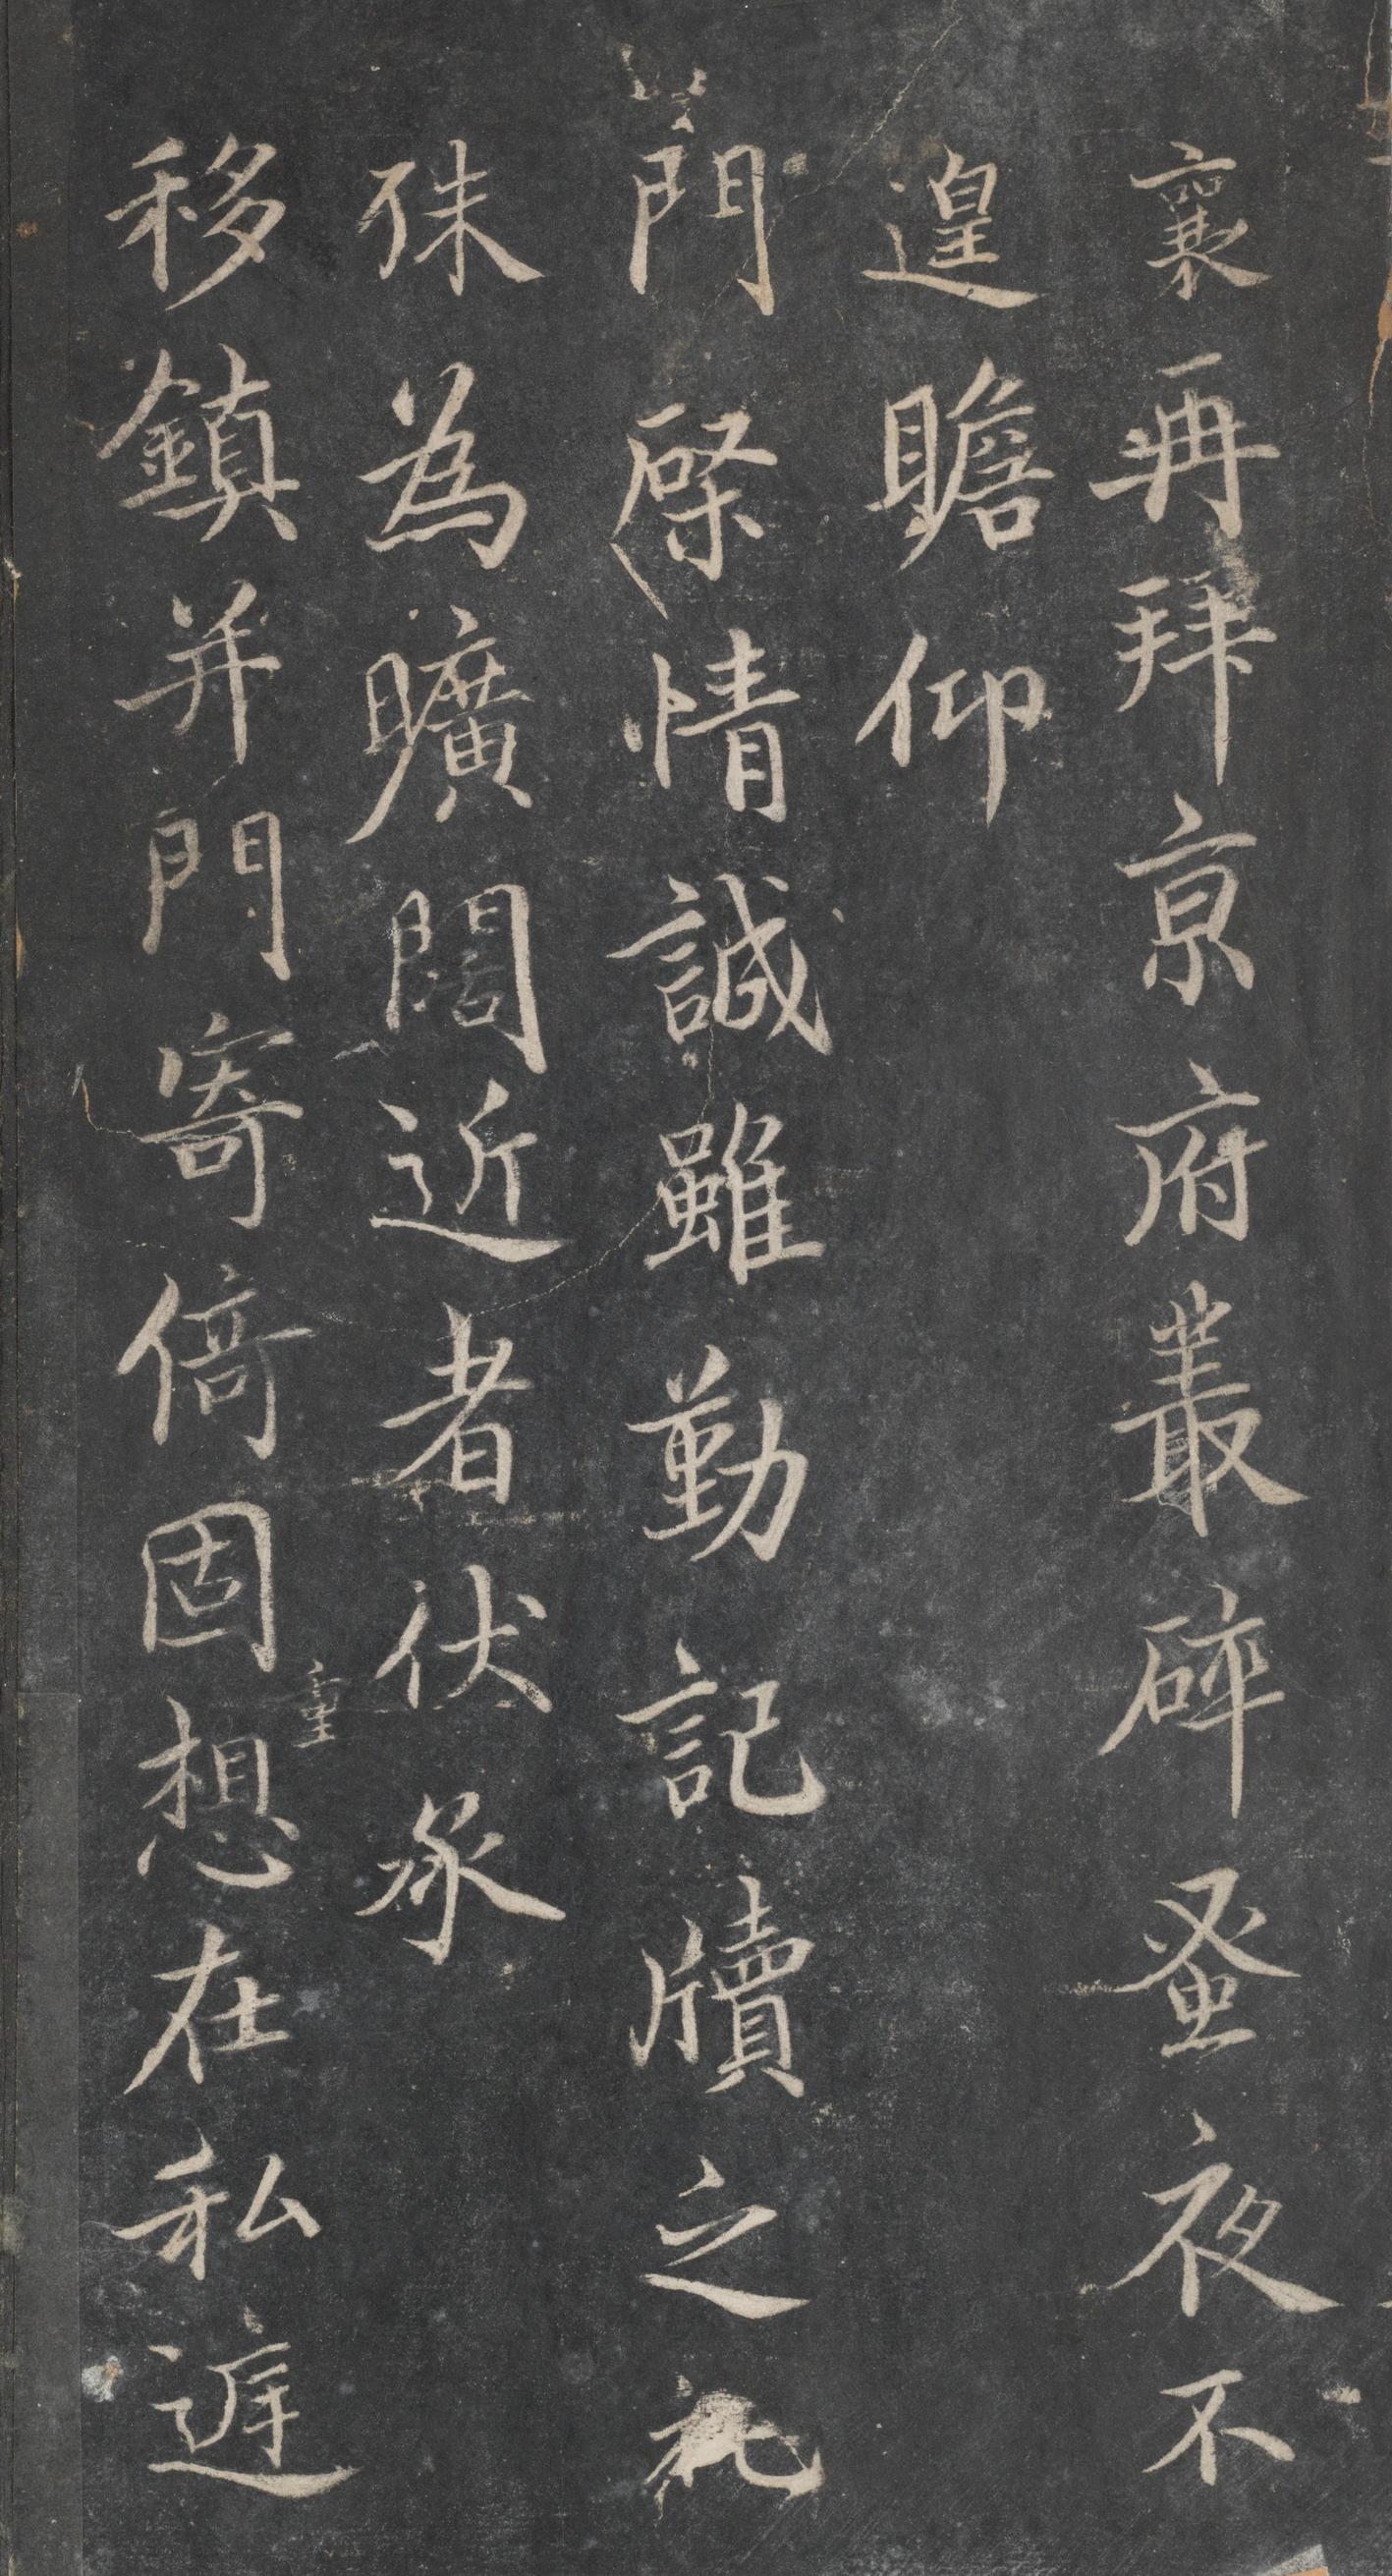 襄再拜亰府叢碎蚤夜不
遑瞻仰
門棨情誠雖勤記牘之礼
殊為曠闊近者伏承
移鎮并門寄倚固重想在私